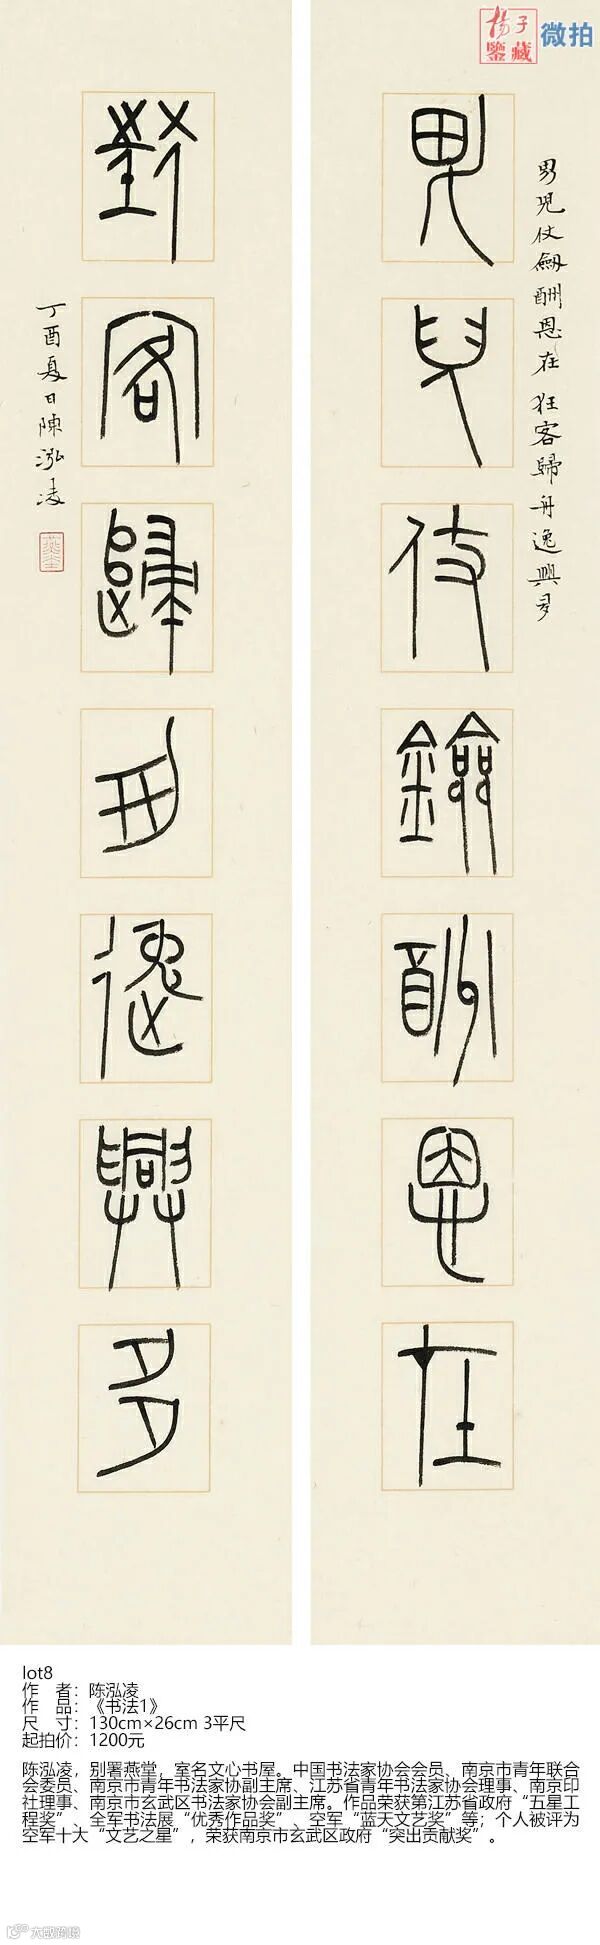 揚子
鑒藏
微拍
男兒仗劍酬恩在
狂客歸舟逸興多
男兒仗劍酬恩在 狂客歸舟逸興多
丁酉夏日陳泓凌
燕堂
lot8
作 者：陈泓凌
作 品：《书法1》
尺 寸：130cm×26cm 3平尺
起拍价：1200元
陈泓凌，别署燕堂，室名文心书屋。中国书法家协会会员、南京市青年联合
会委员、南京市青年书法家协副主席、江苏省青年书法家协会理事、南京印
社理事、南京市玄武区书法家协会副主席。作品荣获第江苏省政府“五星工
程奖”、全军书法展“优秀作品奖”、空军“蓝天文艺奖”等；个人被评为
空军十大“文艺之星”，荣获南京市玄武区政府“突出贡献奖”。
大威跨境